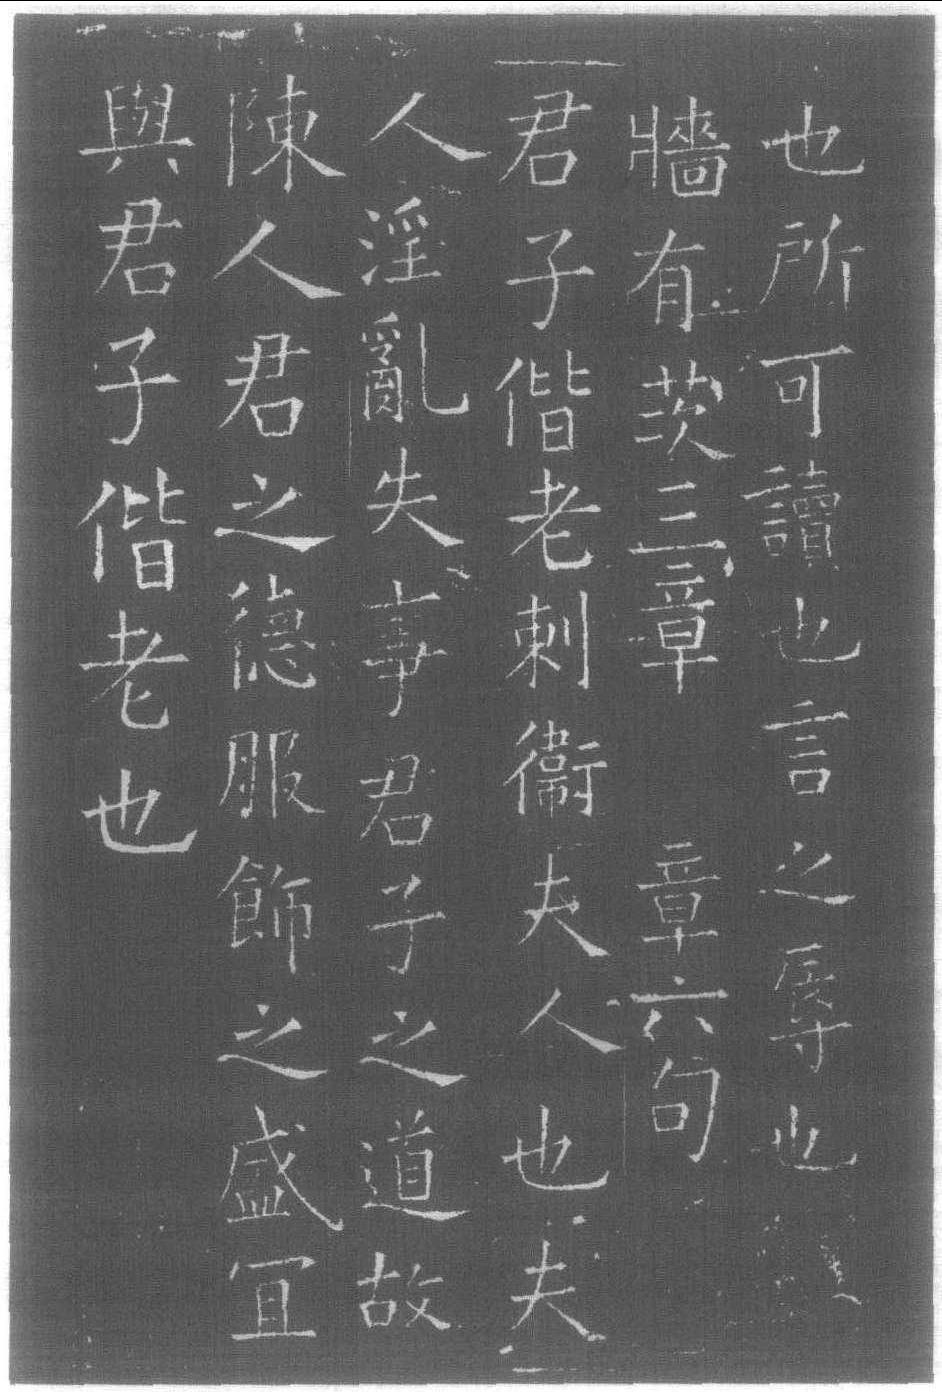 也所可讀也言之辱也
牆有茨三章章六句
君子偕老刺衛夫人也夫
人淫亂失事君子之道故
陳人君之德服飾之盛宜
與君子偕老也